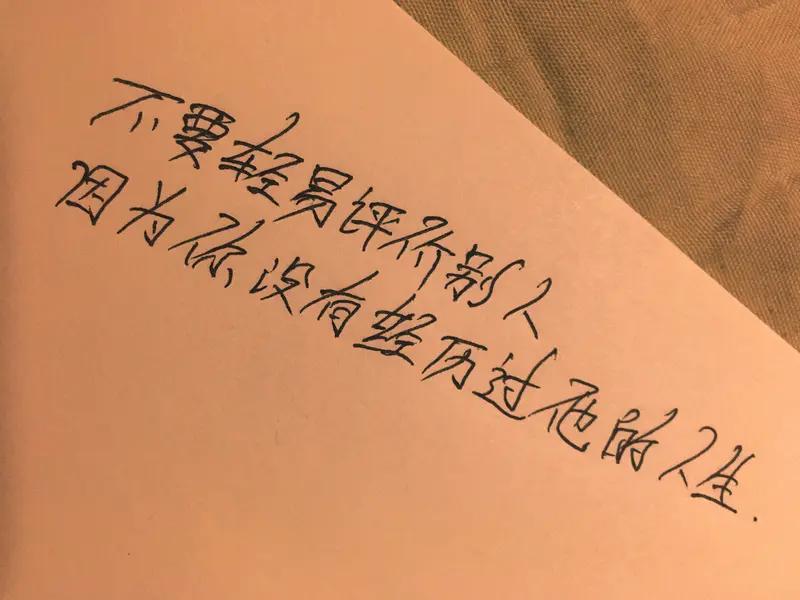 不要轻易评价别人
因为你没有经历过他的人生.